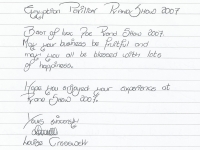 Promo Show 2007
Best of luck Promo Show 2007
May your business be fruitful and
may you all be blessed with lots
of happiness.
Hope you enjoyed your experience at
Show 2007.
Yours sincerely
Louise